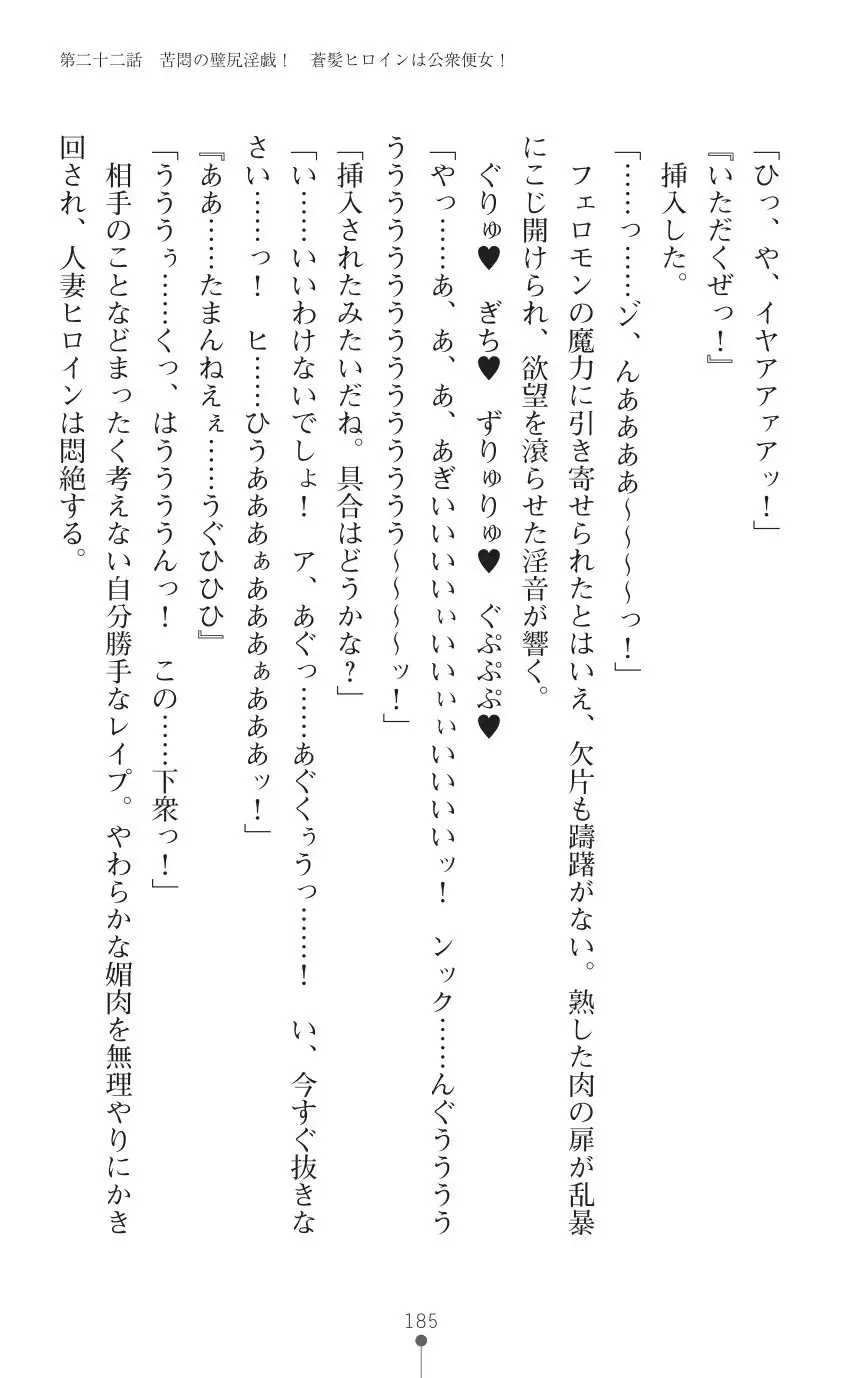 第二十二話　苦悶の壁尻淫戯！　蒼髪ヒロインは公衆便女！
「ひっ、や、イヤアアァアッ！」
『いただくぜっ！』
挿入した。
「……っ……ゾ、んああああ～～～～っ！」
フェロモンの魔力に引き寄せられたとはいえ、欠片も躊躇がない。熟した肉の扉が乱暴
にこじ開けられ、欲望を滾らせた淫音が響く。
ぐりゅ♥　ぎち♥　ずりゅりゅ♥　ぐぷぷぷ♥
「やっ……あ、あ、あ、あぎいいいいぃいいぃぃいいいいッ！　ンック……んぐうううう
ううううううううううううう～～～～ッ！」
「挿入されたみたいだね。具合はどうかな？」
「い……いいわけないでしょ！　ア、あぐっ……あぐくぅうっ……！　い、今すぐ抜きな
さい……っ！　ヒ……ひうあああぁあああぁあああッ！」
『ああ……たまんねえぇ……うぐひひひ』
「うううぅ……くっ、はううううんっ！　この……下衆っ！」
相手のことなどまったく考えない自分勝手なレイプ。やわらかな媚肉を無理やりにかき
回され、人妻ヒロインは悶絶する。
185